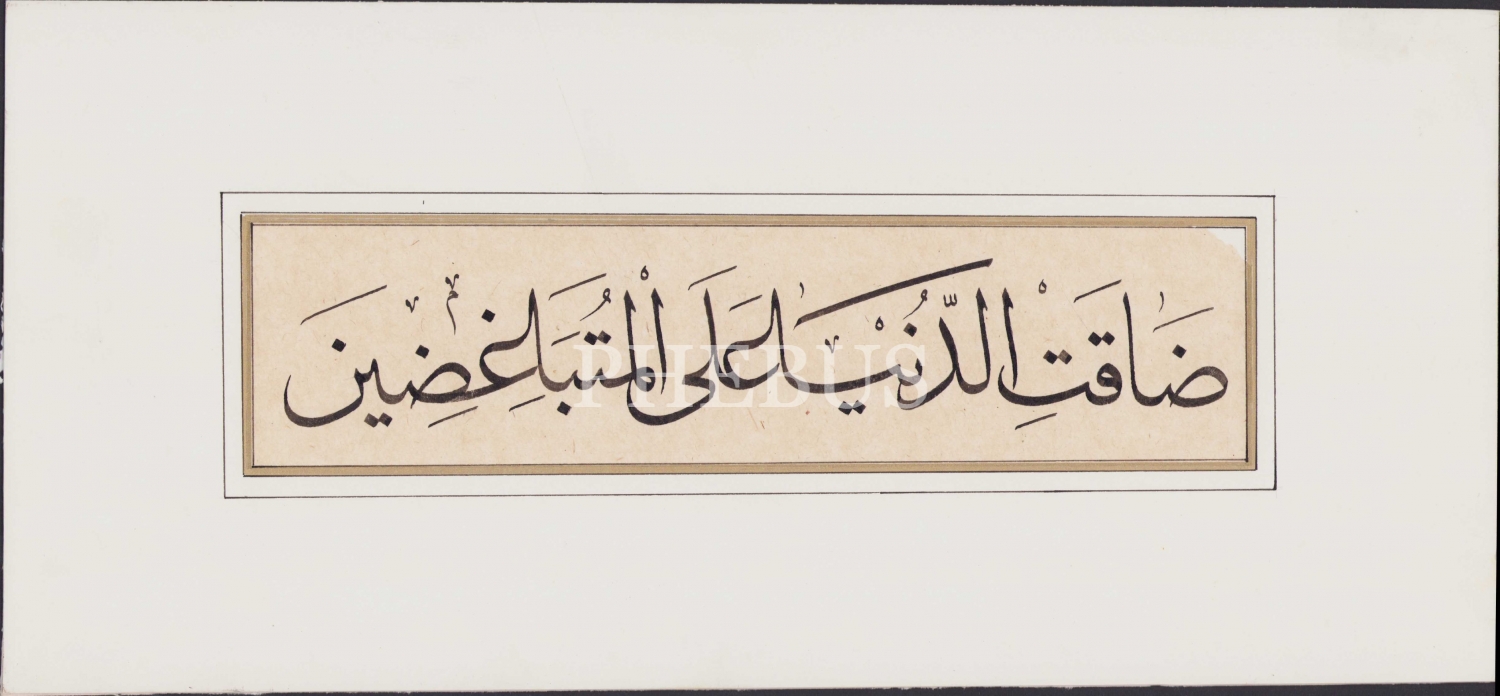 ضَاقَتِ الدُّنْيَا عَلَى الْمُتَبَاغِضِينَ
PHEBUS